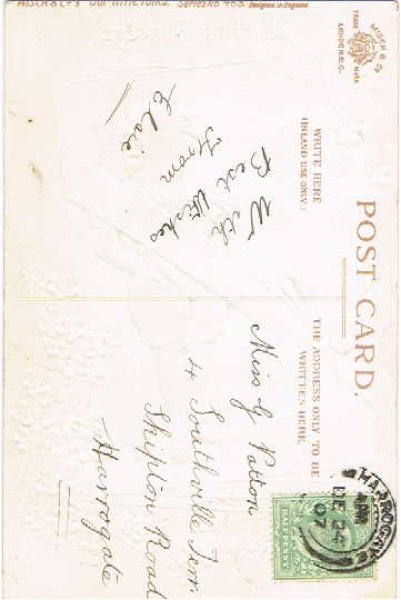 MISCH & Co's "Our Little Folks." Series No 403. Designed in England.
MISCH & Co
TRADE MARK
LONDON, E.C.
POST CARD.
WRITE HERE
(INLAND USE ONLY.)
With
Best Wishes
From
Elsie
THE ADDRESS ONLY TO BE
WRITTEN HERE.
Miss G Patton
4 Southville Terr
Skipton Road
Harrogate
HARROGATE
DE 24
07
HALFPENNY